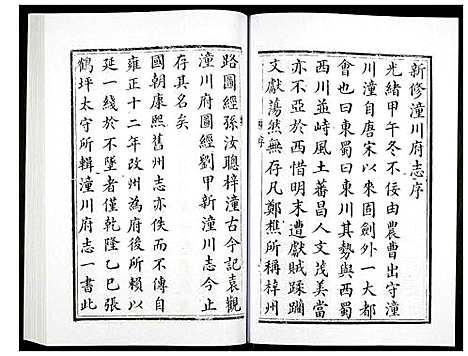 新修潼川府志序
光緒甲午冬不佞由農曹出守潼
川潼自唐宋以來固劍外一大都
會也曰東蜀曰東川其勢與西蜀
西川並峙風土蕃昌人文茂美當
亦不亞於西明末遭獻賊蹂躪
文獻蕩然無存凡鄭樵所稱梓州
路圖經孫汝聰梓潼古今記袁觀
潼川府圖經劉甲新潼川志今止
存其名矣
國朝康熙舊州志亦佚而不傳自
雍正十二年改州為府後所賴以
延一綫於不墜者僅乾隆乙巳張
鶴坪太守所輯潼川府志一書此